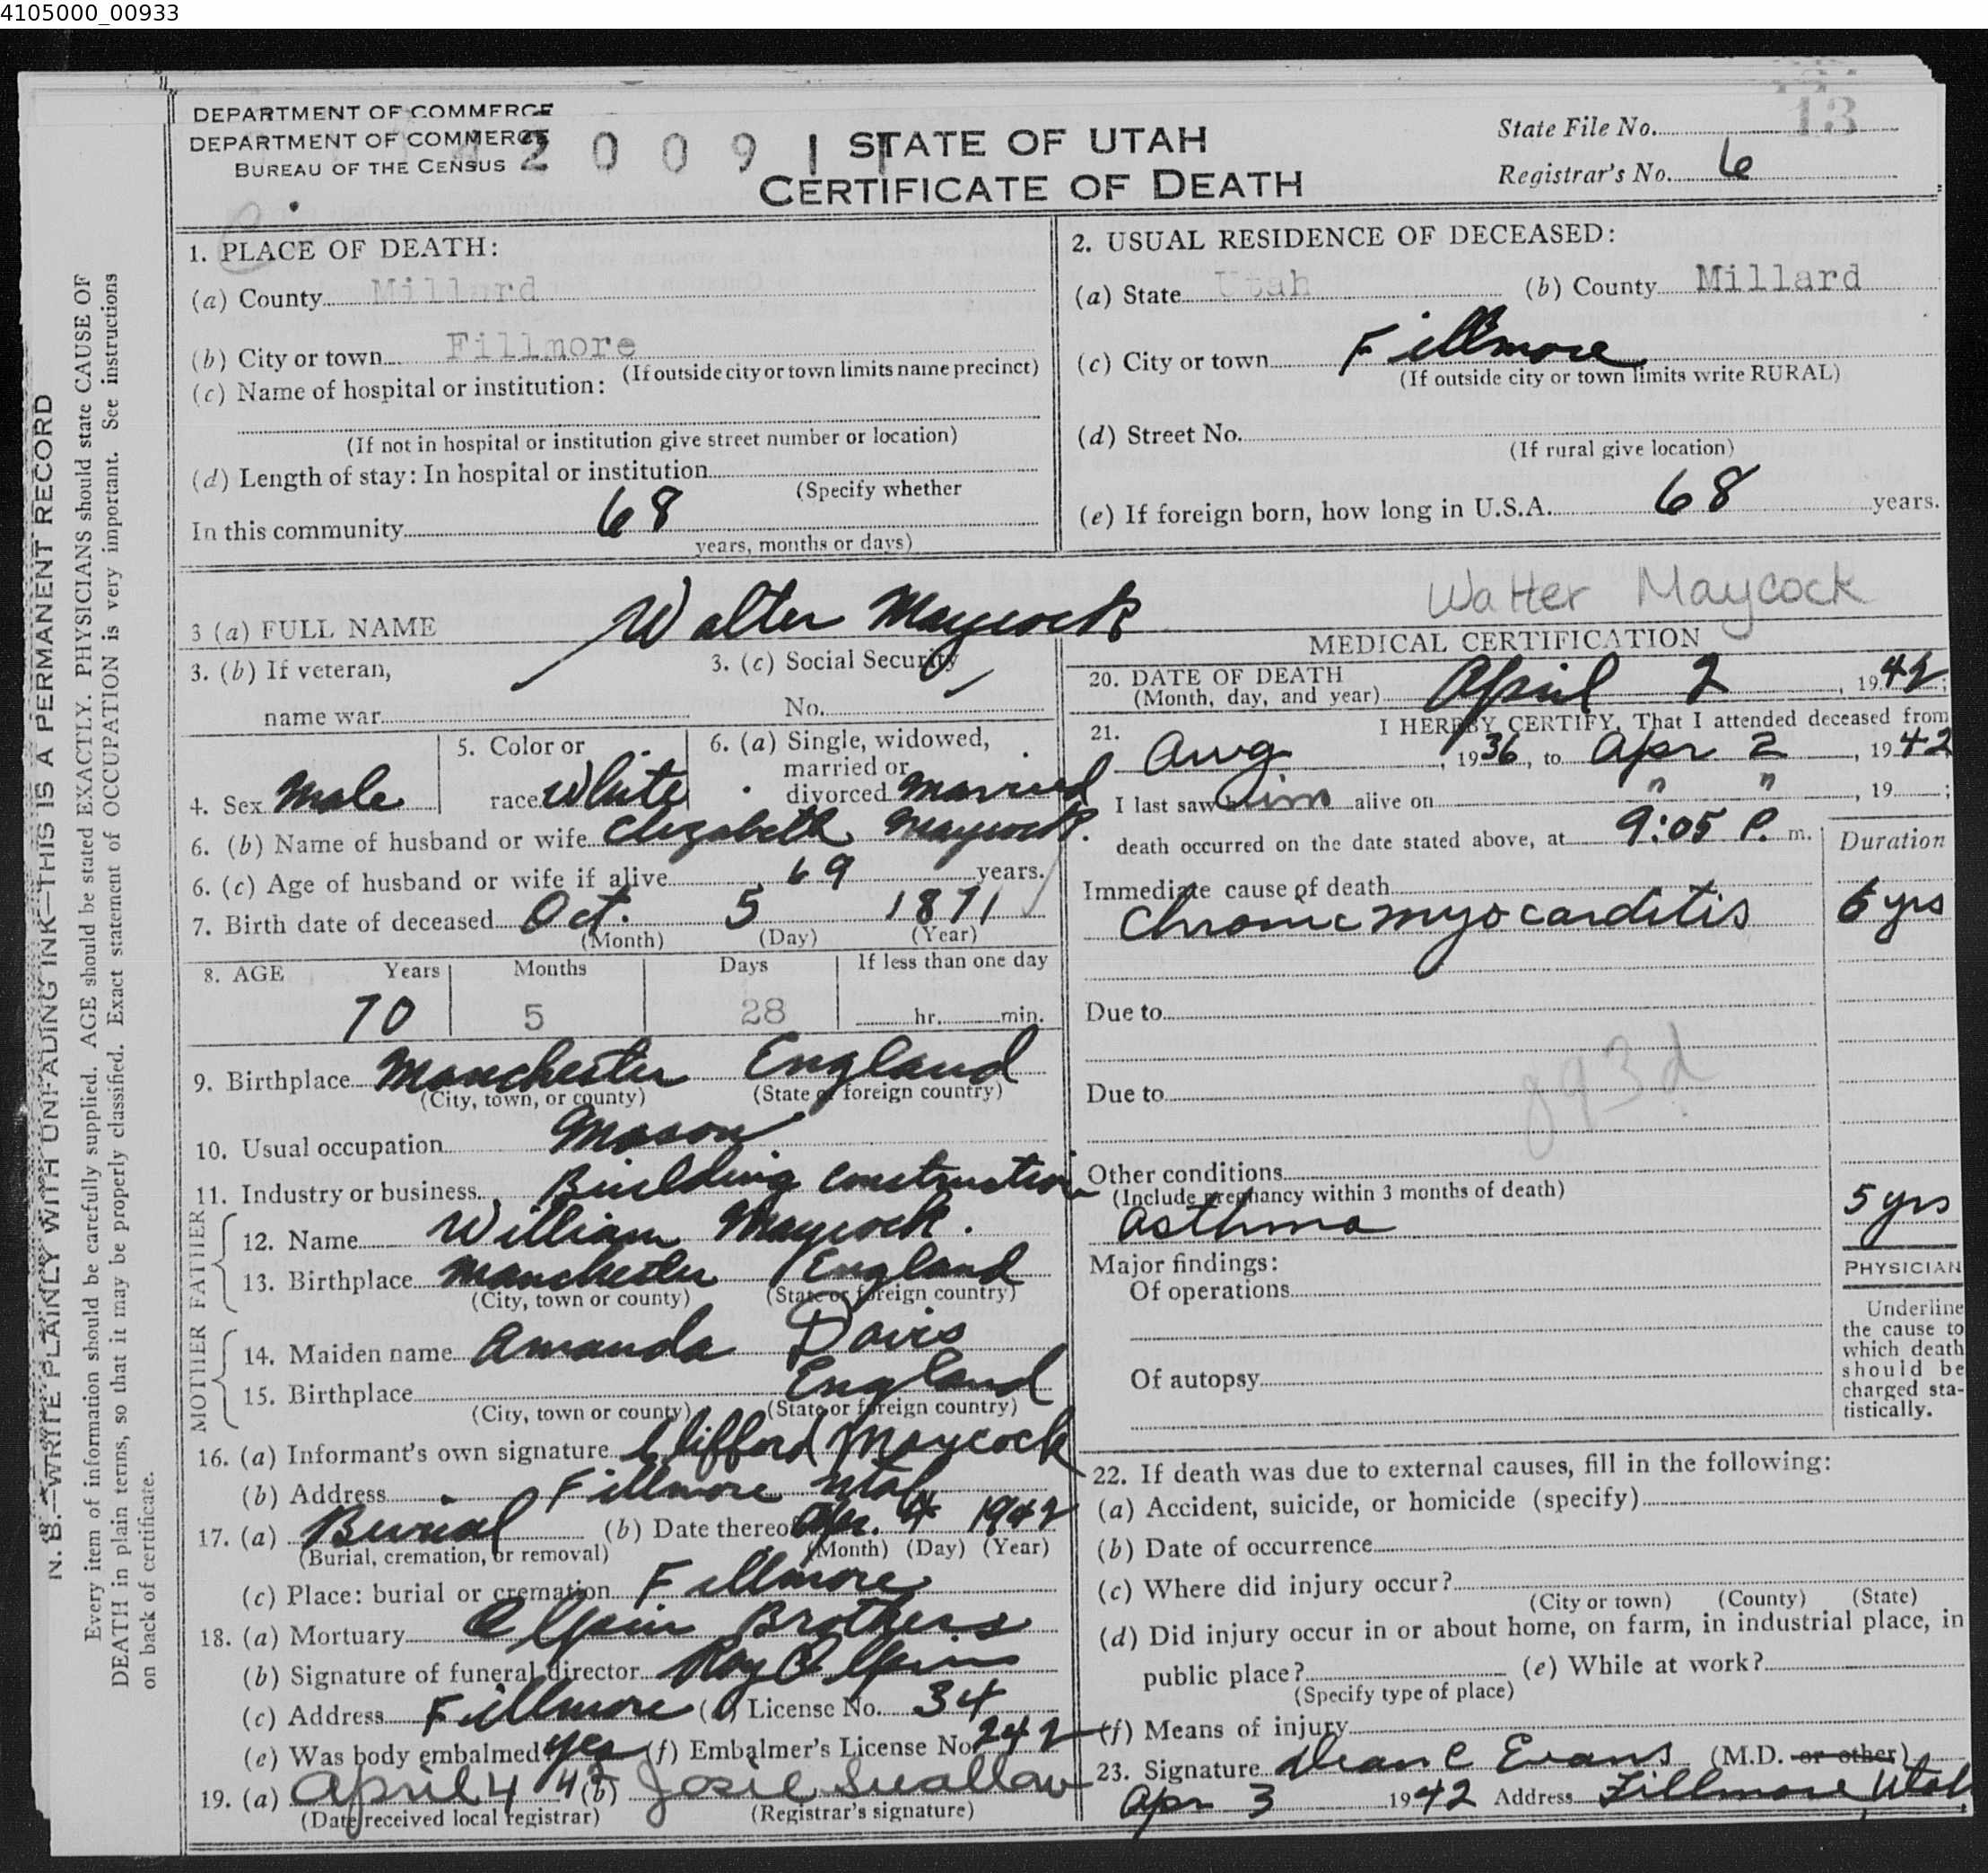 4105000_00933
DEPARTMENT OF COMMERCE
DEPARTMENT OF COMMERCE
BUREAU OF THE CENSUS
2 0 0 9 1
STATE OF UTAH
CERTIFICATE OF DEATH
State File No. 13
Registrar's No. 6
1. PLACE OF DEATH:
(a) County Millard
(b) City or town Fillmore
(If outside city or town limits name precinct)
(c) Name of hospital or institution:
(If not in hospital or institution give street number or location)
(d) Length of stay: In hospital or institution
(Specify whether
In this community 68
years, months or days)
2. USUAL RESIDENCE OF DECEASED:
(a) State Utah (b) County Millard
(c) City or town Fillmore
(If outside city or town limits write RURAL)
(d) Street No.
(If rural give location)
(e) If foreign born, how long in U.S.A. 68 years.
3 (a) FULL NAME Walter Maycock
Walter Maycock
3. (b) If veteran,
name war
3. (c) Social Security
No.
4. Sex Male
5. Color or
race White
6. (a) Single, widowed,
married or
divorced married
6. (b) Name of husband or wife Elizabeth Maycock.
6. (c) Age of husband or wife if alive 69 years.
7. Birth date of deceased Oct. 5 1871
(Month) (Day) (Year)
8. AGE Years Months Days If less than one day
70 5 28 hr. min.
9. Birthplace Manchester England
(City, town, or county) (State or foreign country)
10. Usual occupation Mason
11. Industry or business Building construction
FATHER
12. Name William Maycock.
13. Birthplace Manchester England
(City, town or county) (State or foreign country)
MOTHER
14. Maiden name Amanda Davis
15. Birthplace England
(City, town or county) (State or foreign country)
16. (a) Informant's own signature Clifford Maycock
(b) Address Fillmore Utah
17. (a) Burial (b) Date thereof Apr. 4 1942
(Burial, cremation, or removal) (Month) (Day) (Year)
(c) Place: burial or cremation Fillmore
18. (a) Mortuary Olpin Brothers
(b) Signature of funeral director Roy Olpin
(c) Address Fillmore License No. 34
(e) Was body embalmed yes (f) Embalmer's License No. 242
19. (a) April 4 42 (b) Josie Swallow
(Date received local registrar) (Registrar's signature)
MEDICAL CERTIFICATION
20. DATE OF DEATH
(Month, day, and year) April 2, 1942;
21. I HEREBY CERTIFY, That I attended deceased from
Aug, 1936, to Apr 2, 1942
I last saw him alive on " ", 19 ;
death occurred on the date stated above, at 9:05 P. m.
Duration
Immediate cause of death
Chronic myocarditis 6 yrs
Due to
Due to
93d
Other conditions
(Include pregnancy within 3 months of death)
asthma 5 yrs
Major findings:
Of operations
Of autopsy
PHYSICIAN
Underline
the cause to
which death
should be
charged sta-
tistically.
22. If death was due to external causes, fill in the following:
(a) Accident, suicide, or homicide (specify)
(b) Date of occurrence
(c) Where did injury occur?
(City or town) (County) (State)
(d) Did injury occur in or about home, on farm, in industrial place, in
public place? (e) While at work?
(Specify type of place)
(f) Means of injury
23. Signature Dean C Evans (M.D. or other)
Apr 3 1942 Address Fillmore, Utah
N. B.—WRITE PLAINLY WITH UNFADING INK—THIS IS A PERMANENT RECORD
Every item of information should be carefully supplied. AGE should be stated EXACTLY. PHYSICIANS should state CAUSE OF
DEATH in plain terms, so that it may be properly classified. Exact statement of OCCUPATION is very important. See instructions
on back of certificate.